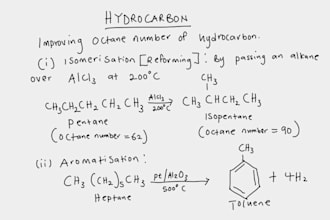 HYDROCARBON
Improving octane number of hydrocarbon.
(i) Isomerisation [Reforming] : By passing an alkane
over AlCl₃ at 200°C
CH₃
CH₃CH₂CH₂ CH₂ CH₃ AlCl₃ 200°C CH₃ CHCH₂ CH₃
Pentane Isopentane
(Octane number = 62) (octane number = 90)
(ii) Aromatisation :
CH₃
CH₃ (CH₂)₅CH₃ Pt/Al₂O₃ 500°C + 4H₂
Heptane Toluene